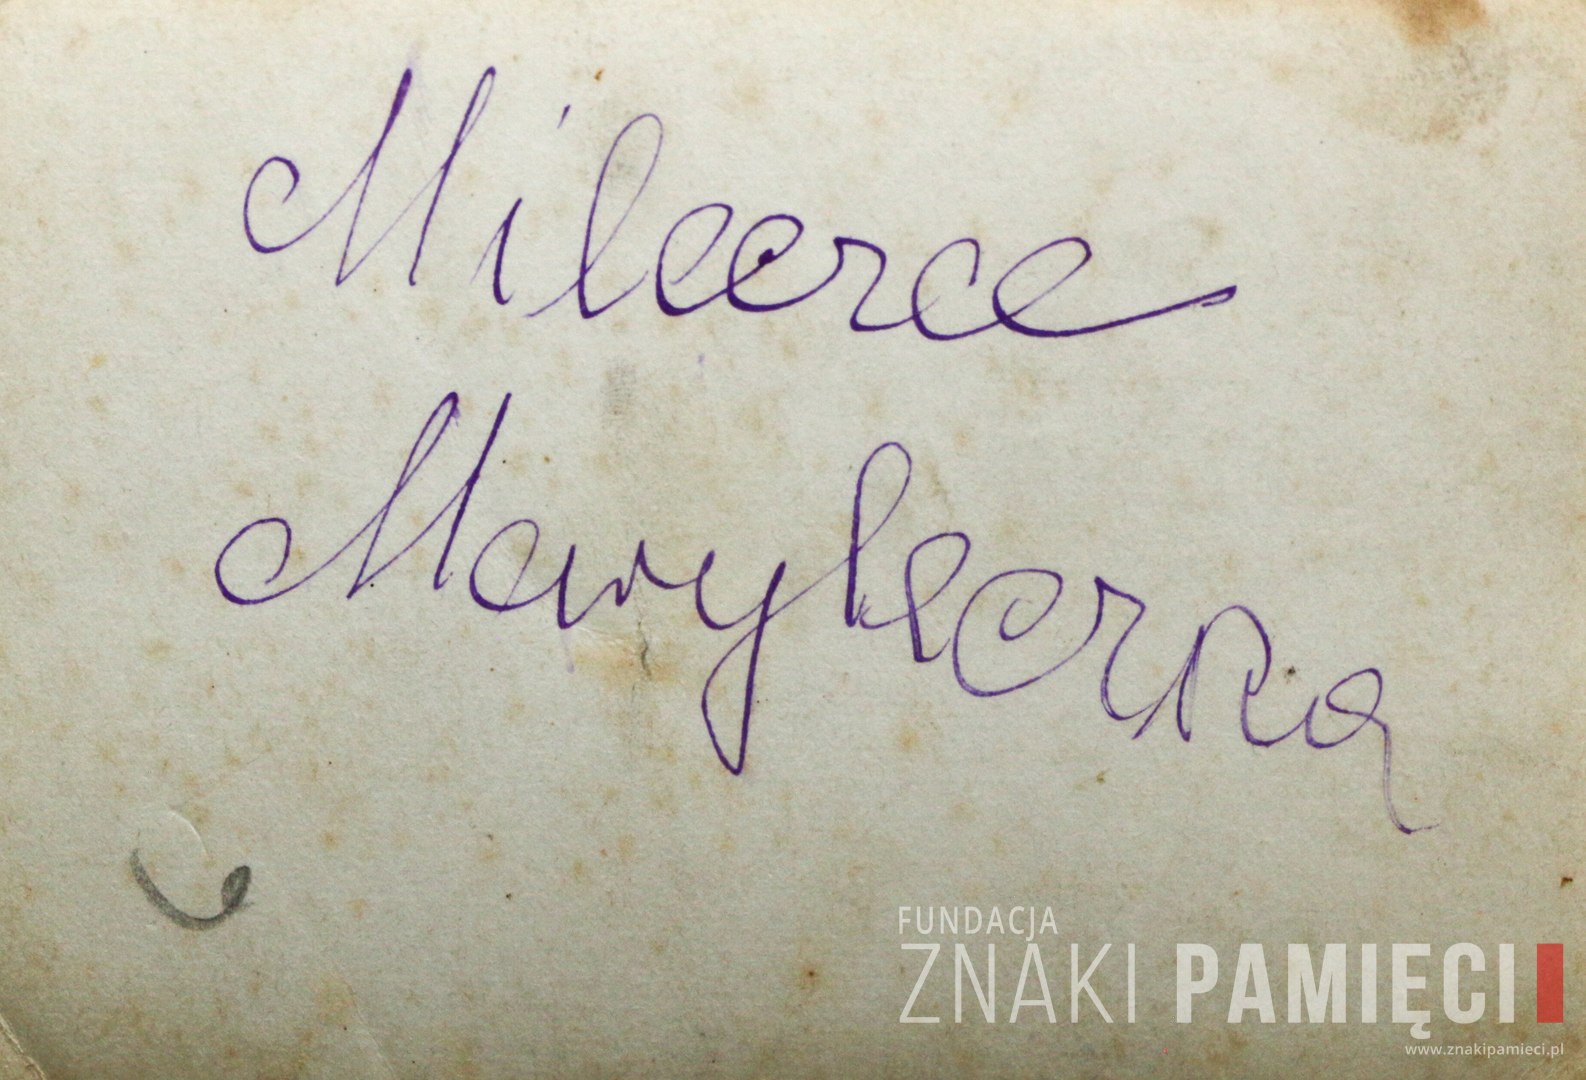 Mileerce
Mawyleerka
FUNDACJA
ZNAKI PAMIĘCI
www.znakipamieci.pl